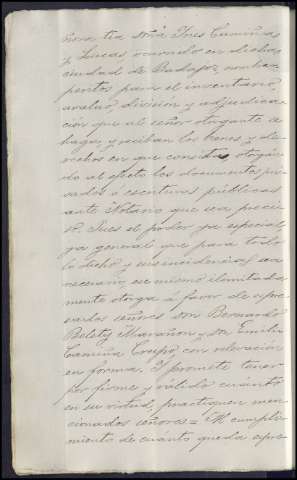 ñora tia Doña Ines Camiña
y Lucas, ocurrido en dicha
ciudad de Badajoz, nombren
peritos para el inventario,
avaluo, division y adjudica-
cion que al señor otorgante se
haga, y reciban los bienes y de-
rechos en que consista otorgan-
do al efecto los documentos pri-
vados ó escrituras públicas
ante Notario que sea preci-
so. Pues el poder ya especial,
ya general que para todo
lo dicho y sus incidencias sea
necesario, ese mismo ilimitada-
mente otorga á favor de expre-
sados señores Don Bernardo
Belety Marañon y Don Emilio
Camiña Crespo, con relevacion
en forma. Y promete tener
por firme y válido cuánto
en su virtud, practiquen men-
cionados señores = Al cumpli-
miento de cuánto queda expre-